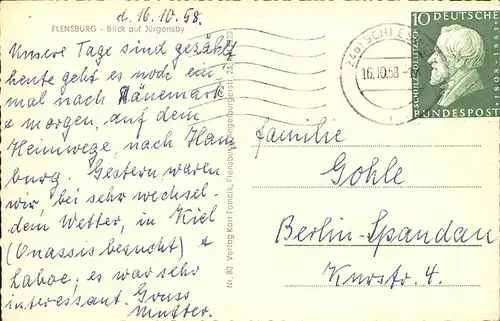 d. 16.10.58.
FLENSBURG - Blick auf Jürgensby
Unsere Tage sind gezählt
heute geht es noch ein-
mal nach Dänemark
u morgen, auf dem
Heimwege, nach Ham
burg. Gestern waren
wir, bei sehr wechsel-
dem Wetter, in Kiel
(Onassis besucht) +
Laboe; es war sehr
interessant. Gruss
Mutter.
Nr. 80 Verlag Karl Tomcik, Flensburg
16.10.58
10 DEUTSCHE
SCHULZE-DELITZSCH
BUNDESPOST
Familie
Gohle
Berlin-Spandau
Kurstr. 4.